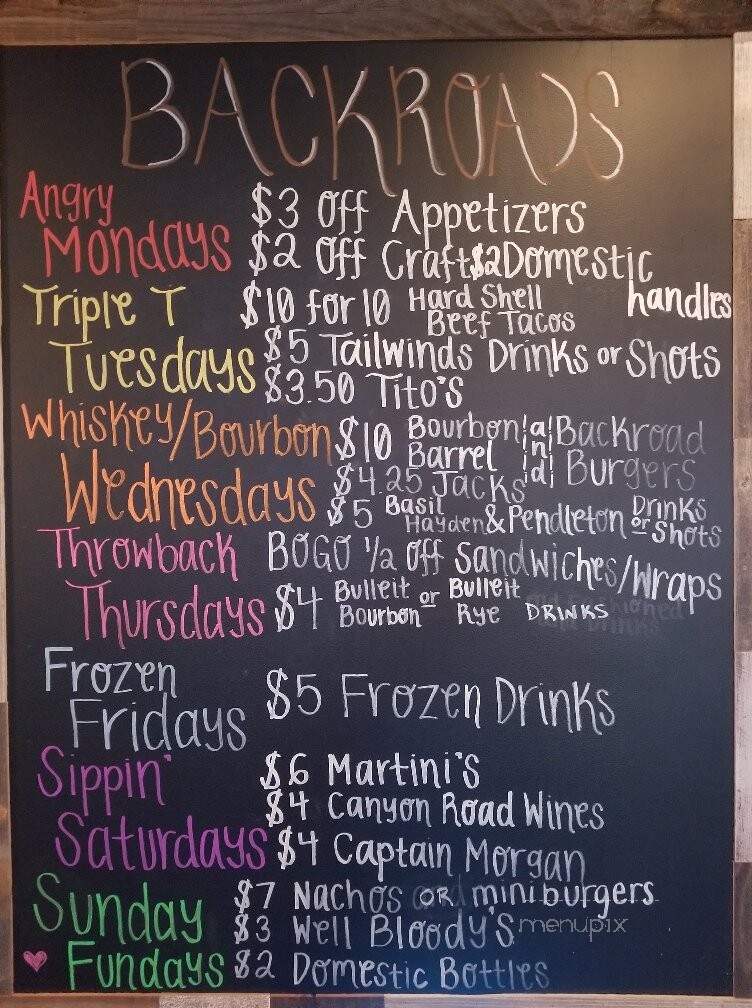 BACKROADS
Angry $3 Off Appetizers
Mondays $2 Off Craft $2 Domestic
handles
Triple T $10 for 10 Hard Shell
Beef Tacos
Tuesdays $5 Tailwinds Drinks or Shots
$3.50 Tito's
Whiskey/Bourbon $10 Bourbon and Backroad
Barrel Burgers
Wednesdays $4.25 Jacks
$5 Basil Hayden & Pendleton Drinks or Shots
Throwback BOGO 1/2 Off Sandwiches/Wraps
Thursdays $4 Bulleit or Bulleit
Bourbon Rye DRINKS
Frozen
Fridays $5 Frozen Drinks
Sippin' $6 Martini's
$4 Canyon Road Wines
Saturdays $4 Captain Morgan
Sunday $7 Nachos OR miniburgers
$3 Well Bloody's
menupix
Fundays $2 Domestic Bottles